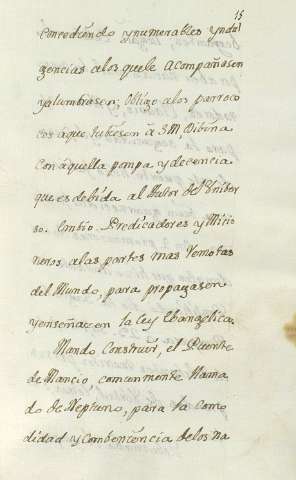 15
Concediendo ynumerables yndul
gencias alos que le acompañasen
yalumbrasen; Obligo alos parroco
cos aque tubiesen â S.M. Dibina
con aquella pompa y decencia
que es debida al Autor del Uniber
so. Embio Predicadores y Misio
neros alas partes mas remotas
del Mundo, para propagasen
yenseñacen la Ley Ebangelica.
Mando Construir, el Puente
de Mancio comunmente llama
do de Neptuno, para la como
didad y combencencia delos Na